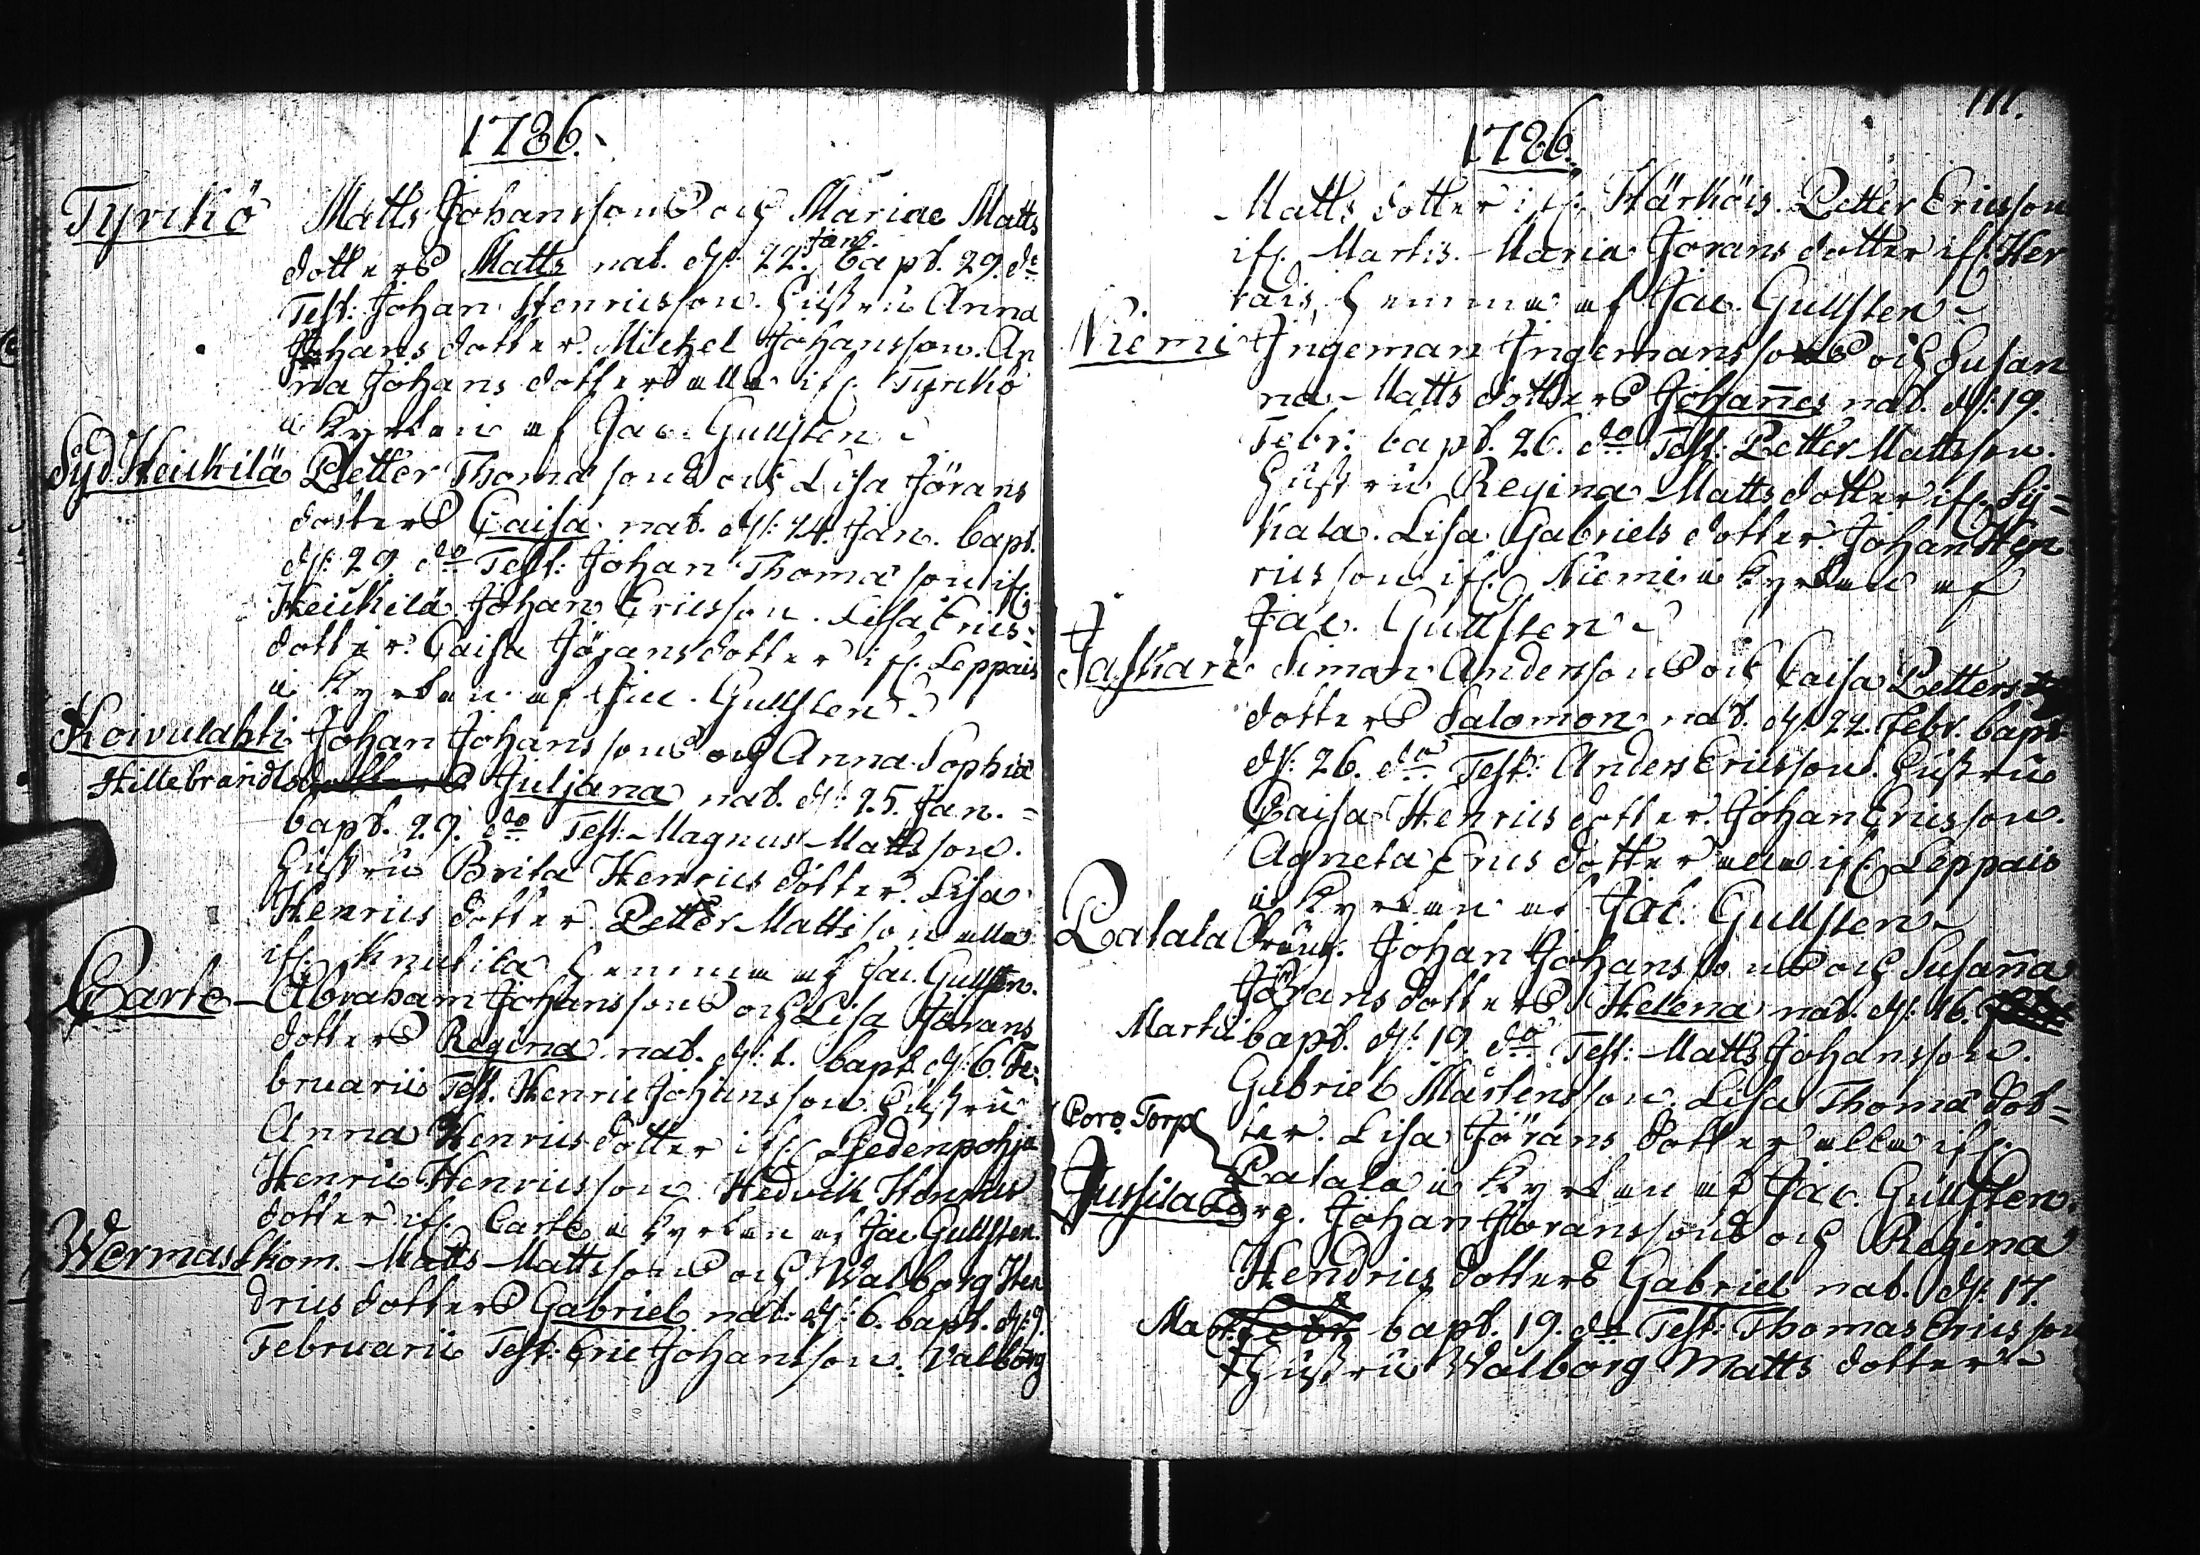 1786.
Tyrckö Matts Johanssons och Mariae Matts
dotters Matts nat. d: 22. Janr. bapt. 29. do
Test: Johan Henricsson. Hustru Anna
Johans dotter. Michel Johansson. An
na Johans dotter alla if. Tyrckö
i kyrkan af Jac. Gullsten
Syd Heickilä Petter Thomæ sons och Lisa Jörans
dotters Caisa nat. d: 24. Jan. bapt.
d: 29 do Test: Johan Thomæ son if.
Heickilä Johan Ericsson. Lisa Erics
dotter. Caisa Jöransdotter if. Leppais
i kyrkan af Jac. Gullsten
Koivulahti Johan Johanssons och Anna Sophia
Hillebrandts dotters Juljana nat. d: 25. Jan. =
bapt. 29. do Test: Magnus Mattsson.
Hustru Brita Henrics dotter. Lisa
Henrics dotter. Petter Mattsson alla
if. Knutila hemma af Jac. Gullsten.
Carte Abraham Johanssons och Lisa Jörans
dotters Regina nat. d: 1. bapt d: 6. Fe=
bruarii Test. Henric Johansson. Hustru
Anna Henricsdotter if. Pedenpohja
Henric Henricsson. Hedvik Henrics
dotter if. Carte i kyrkan af Jac Gullsten.
Wermas Skom. Matts Mattssons och Walborg Hen
drics dotters Gabriel nat: d: 6. bapt. d: 9.
Februarii Test: Eric Johansson. Valborg
111.
1786.
Matts dotter if: Härköis. Petter Ericsson
if. Martis. Maria Jörans dotter if. Her
rais, hemma af Jac. Gullsten
Niemi Ingeman Ingemanssons och Susan
na Matts dotters Johañes nat. d: 19.
Febr. bapt. 26. do Test: Petter Mattsson.
Hustru Regina Mattsdotter if. Sy=
kala. Lisa Gabriels dotter. Johan Hen
ricsson if. Niemi i kyrkan af
Jac. Gullsten
Jaskari Simon Anderssons och Caisa Petters
dotters Salomon nat. d: 22. Febr. bapt
d: 26. do Test: Anders Ericsson. Hustru
Caisa Henrics dotter. Johan Ericsson.
Agneta Erics dotter alla if. Leppais
i kyrkan af Jac. Gullsten
Palala Johan Johanssons och Susaña
Jörans dotters Helena nat. d: 16.
Martii bapt. d: 19. do Test: Matts Johansson.
Gabriel Mårtensson. Lisa Thomæ dot=
ter. Lisa Jörans dotter alla if.
Coro. Torp Palala i kyrkan af Jac. Gullsten.
Jussila Torg. Johan Joranssons och Regina
Hendrics dotters Gabriel nat. d: 17.
Mart. Febr bapt. 19. do Test: Thomas Ericsson
Hustru Walborg Matts dotter